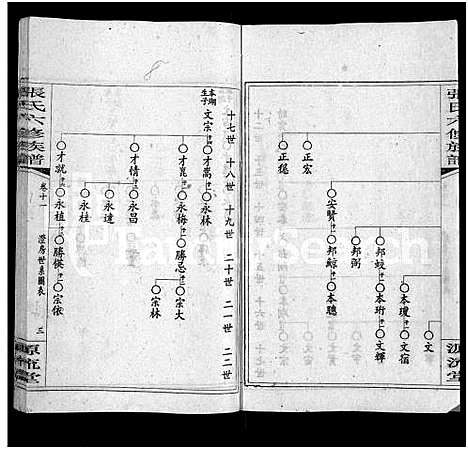 張氏六修族譜
正宏
正毯
安賢
邦鯨
本聰
邦蛟
邦弼
本瓊
本珩
文宿
文輝
文
十七世 十八世 十九世 二十世 二一世 二二世
本瑚
生子
文宗
才嵩
永林
才崑
永梅
勝忠
宗大
宗林
才情
永昌
永達
永桂
才就
永植
勝僕
宗依
張氏六修族譜
卷十一
澄房世系圖表
三
源流堂